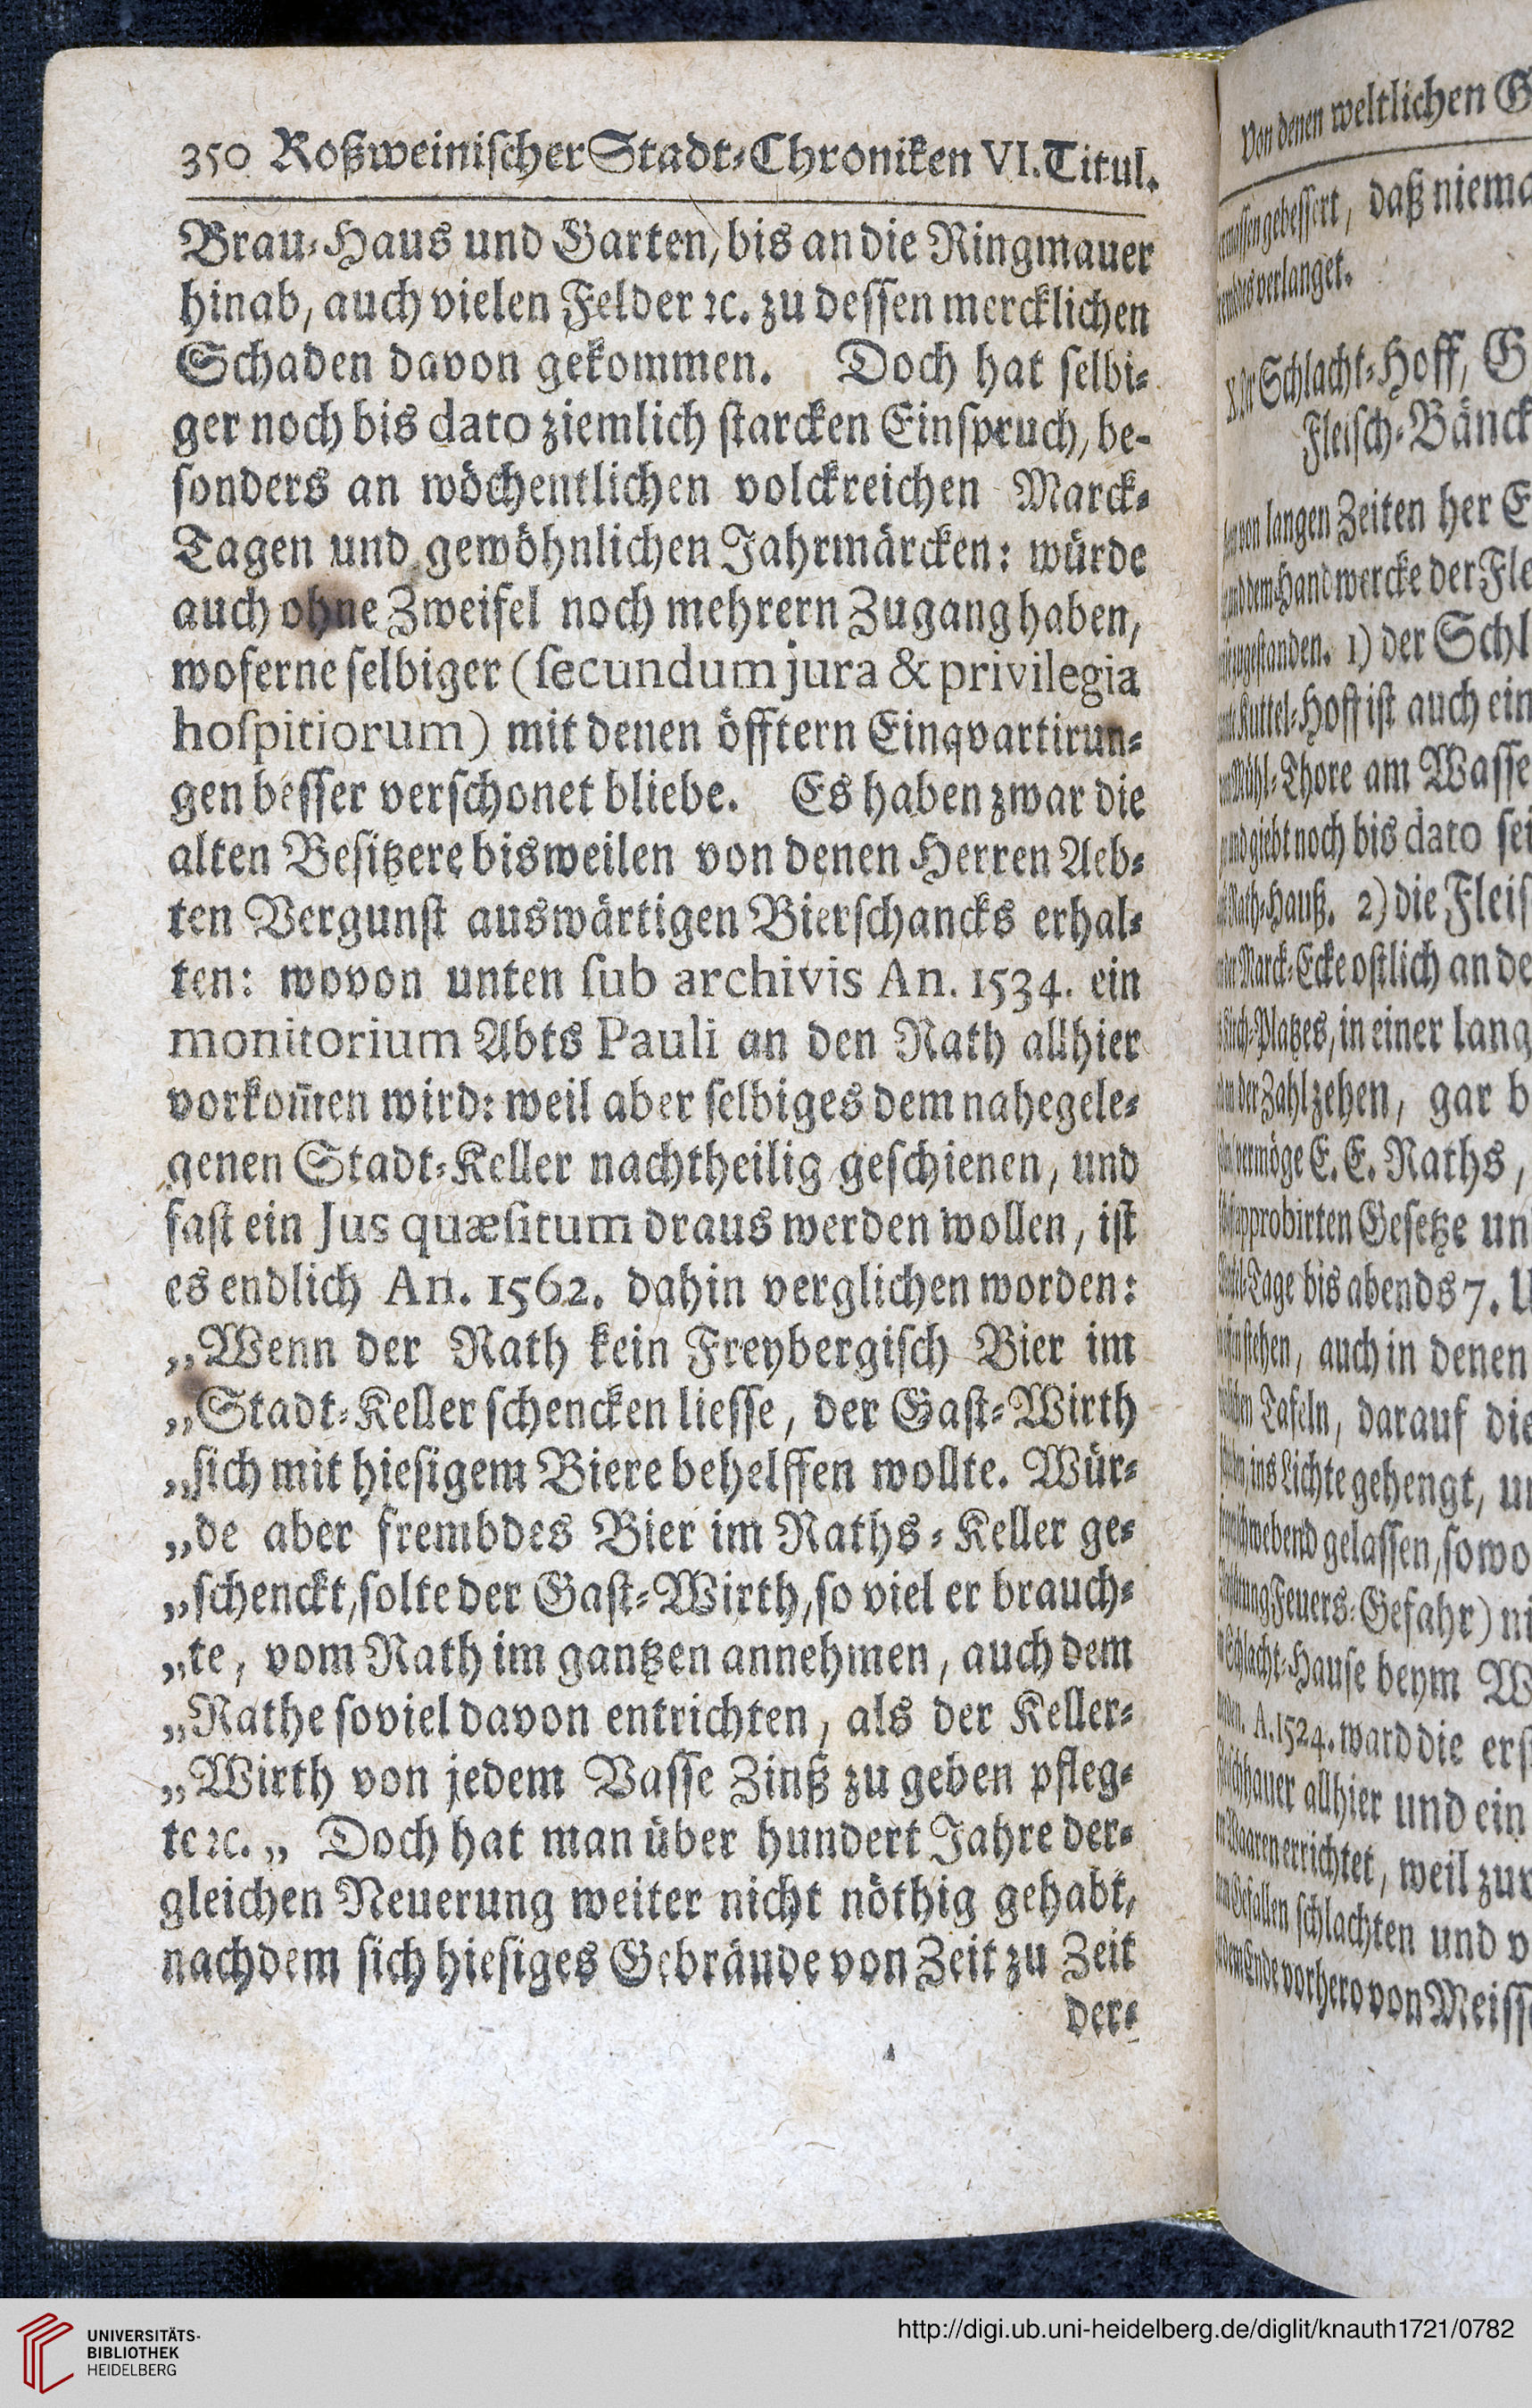 350 Roßweinischer Stadt-Chroniken VI. Titul.
Brau-Haus und Garten, bis an die Ringmauer
hinab, auch vielen Felder ꝛc. zu dessen mercklichen
Schaden davon gekommen. Doch hat selbi-
ger noch bis dato ziemlich starcken Einspruch, be-
sonders an wöchentlichen volckreichen Marck-
Tagen und gewöhnlichen Jahrmärcken: würde
auch ohne Zweifel noch mehrern Zugang haben,
woferne selbiger (secundum jura & privilegia
hospitiorum) mit denen öfftern Einqvartirun-
gen besser verschonet bliebe. Es haben zwar die
alten Besitzere bisweilen von denen Herren Aeb-
ten Vergunst auswärtigen Bierschancks erhal-
ten: wovon unten sub archivis An. 1534. ein
monitorium Abts Pauli an den Rath allhier
vorkom̃en wird: weil aber selbiges dem nahegele-
genen Stadt-Keller nachtheilig geschienen, und
fast ein Jus quæsitum draus werden wollen, ist
es endlich An. 1562. dahin verglichen worden:
„Wenn der Rath kein Freybergisch Bier im
„Stadt-Keller schencken liesse, der Gast-Wirth
„sich mit hiesigem Biere behelffen wollte. Wür-
„de aber frembdes Bier im Raths-Keller ge-
„schenckt, solte der Gast-Wirth, so viel er brauch-
„te, vom Rath im gantzen annehmen, auch dem
„Rathe soviel davon entrichten, als der Keller-
„Wirth von jedem Vasse Zinß zu geben pfleg-
te ꝛc.„ Doch hat man über hundert Jahre der-
gleichen Neuerung weiter nicht nöthig gehabt,
nachdem sich hiesiges Gebräude von Zeit zu Zeit
der-
Von denen weltlichen G
gebessert, daß niema
verlanget.
X. Der Schlacht-Hoff, G
Fleisch-Bänck
von langen Zeiten her E
und dem Handwercke der Fle
zugestanden. 1) der Schl
Kuttel-Hoff ist auch ein
Mühl-Thore am Wasse
und giebt noch bis dato sei
Rath-Hauß. 2) die Fleis
Marck-Ecke ostlich an de
Platzes, in einer lang
an der Zahl zehen, gar b
vermöge E. E. Raths,
approbirten Gesetze un
Tage bis abends 7. U
stehen, auch in denen
Tafeln, darauf die
ins Lichte gehengt, un
schwebend gelassen, so wo
Feuers-Gefahr) ni
Schlacht-Hause beym W
A. 1524. ward die ers
allhier und ein
Waaren errichtet, weil zur
Gefallen schlachten und v
Ende vorhero von Meiss
UNIVERSITÄTS-
BIBLIOTHEK
HEIDELBERG
http://digi.ub.uni-heidelberg.de/diglit/knauth1721/0782